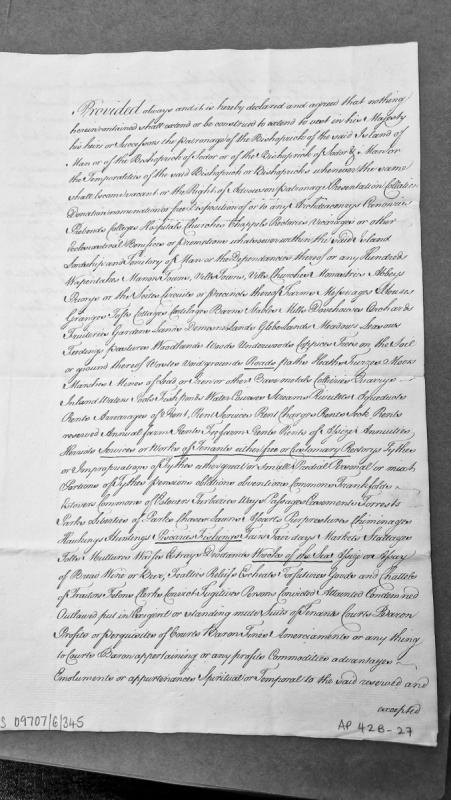 Provided always and it is hereby declared and agreed that nothing
herein contained shall extend or be construed to extend to vest in his Majesty
his heirs or Successors the patronage of the Bishoprick of the said Island of
Man or of the Bishoprick of Sodor or of the Bishoprick of Sodor & Man or
the Temporalties of the said Bishoprick or Bishopricks whenever the same
shall become vacant or the Right of Advowson patronage Presentation Collation
Donation nomination or free Disposition of or to any Archdeaconrys Canonries
Prebends Colleges Hospitals Churches Chappels Rectories Vicarages or other
Ecclesiastical Benefices or promotions whatsoever within the said Island
Lordship and Territory of Man or the Dependances thereof or any Hundreds
Wapentakes Manors Towns, Vills Churches Monastries Abbeys
Priorys or the Scites Circuits or precincts thereof Farms Messuages Houses
Granges Tofts Cottages Curtilages Barns Stables Mills Dovehouses Orchards
Gardens Demesne Lands Glebe lands Meadows Leasows
Feedings pastures Woodlands Woods Underwoods Coppices Trees on the Soil
or ground thereof Wastes Void grounds Roads paths Heaths Furzes Moors
Marshes Mines of Lead or Iron or other Base metals Collieries Quarrys
Inland Waters Pools Fish ponts Water Courses Streams Rivulets Aqueducts
Rents Arrearages of Rent, Rent Services Rent Charges Rents Seck Rents
reserved Annual farm Rents Fee farm Rents Rents of Assize Annuities
Services or Works of Tenants either free or Customary Rectorys Tythes
or Impropriations of Tythes either great or small
Portions of Tythes Pensions Oblations Commons
Estovers Common of Estover Turbaries Ways Passages Easements Forrests
Parks Liberties of Parks Chaces Lawns Purprestures Chiminages
Hawkings Huntings Piscaries Fishings Fairs Fair days Markets Stallages
Tolls Waifs Estrays Wrecks of the Sea Assize or Assay
of Bread Wine or Beer, Fealties Reliefs Escheats Forfeitures Goods and Chattels
of Traitors Felons Clerks Convict Fugitives Persons Convicted Attainted Condemned
Outlawed put in Exigent or standing mute Suits of Tenants Courts Baron
Profits or perquisites of Courts Baron Fines Amerciaments or any thing
to Courts Baron appertaining or any profits Commodities advantages
Emoluments or appurtenances Spiritual or Temporal to the said reserved and
excepted
S 09707/6/345
AP 42B-27